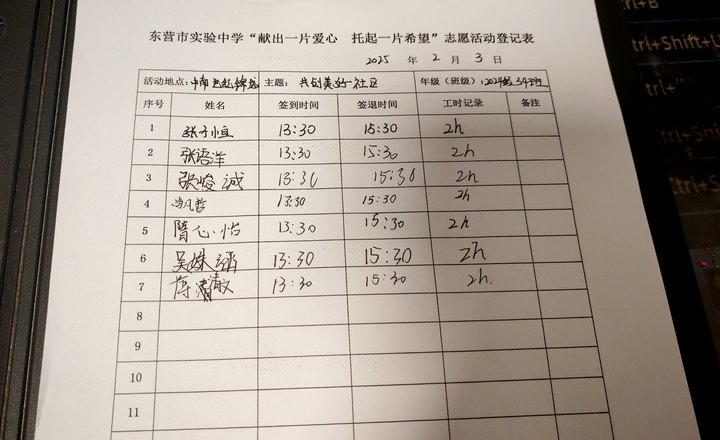 东营市实验中学“献出一片爱心 托起一片希望”志愿活动登记表
2025 年 2 月 3 日
活动地点: 中南 主题: 共创美好社区 年级(班级): 34班
序号 姓名 签到时间 签退时间 工时记录 备注
1 张子恒 13:30 15:30 2h
2 张语洋 13:30 15:30 2h
3 张峻诚 13:30 15:30 2h
4 冯凡哲 13:30 15:30 2h
5 隋心怡 13:30 15:30 2h
6 吴姝 13:30 15:30 2h
7 敏 13:30 15:30 2h.
8
9
10
11
trl+B
trl+Shift+